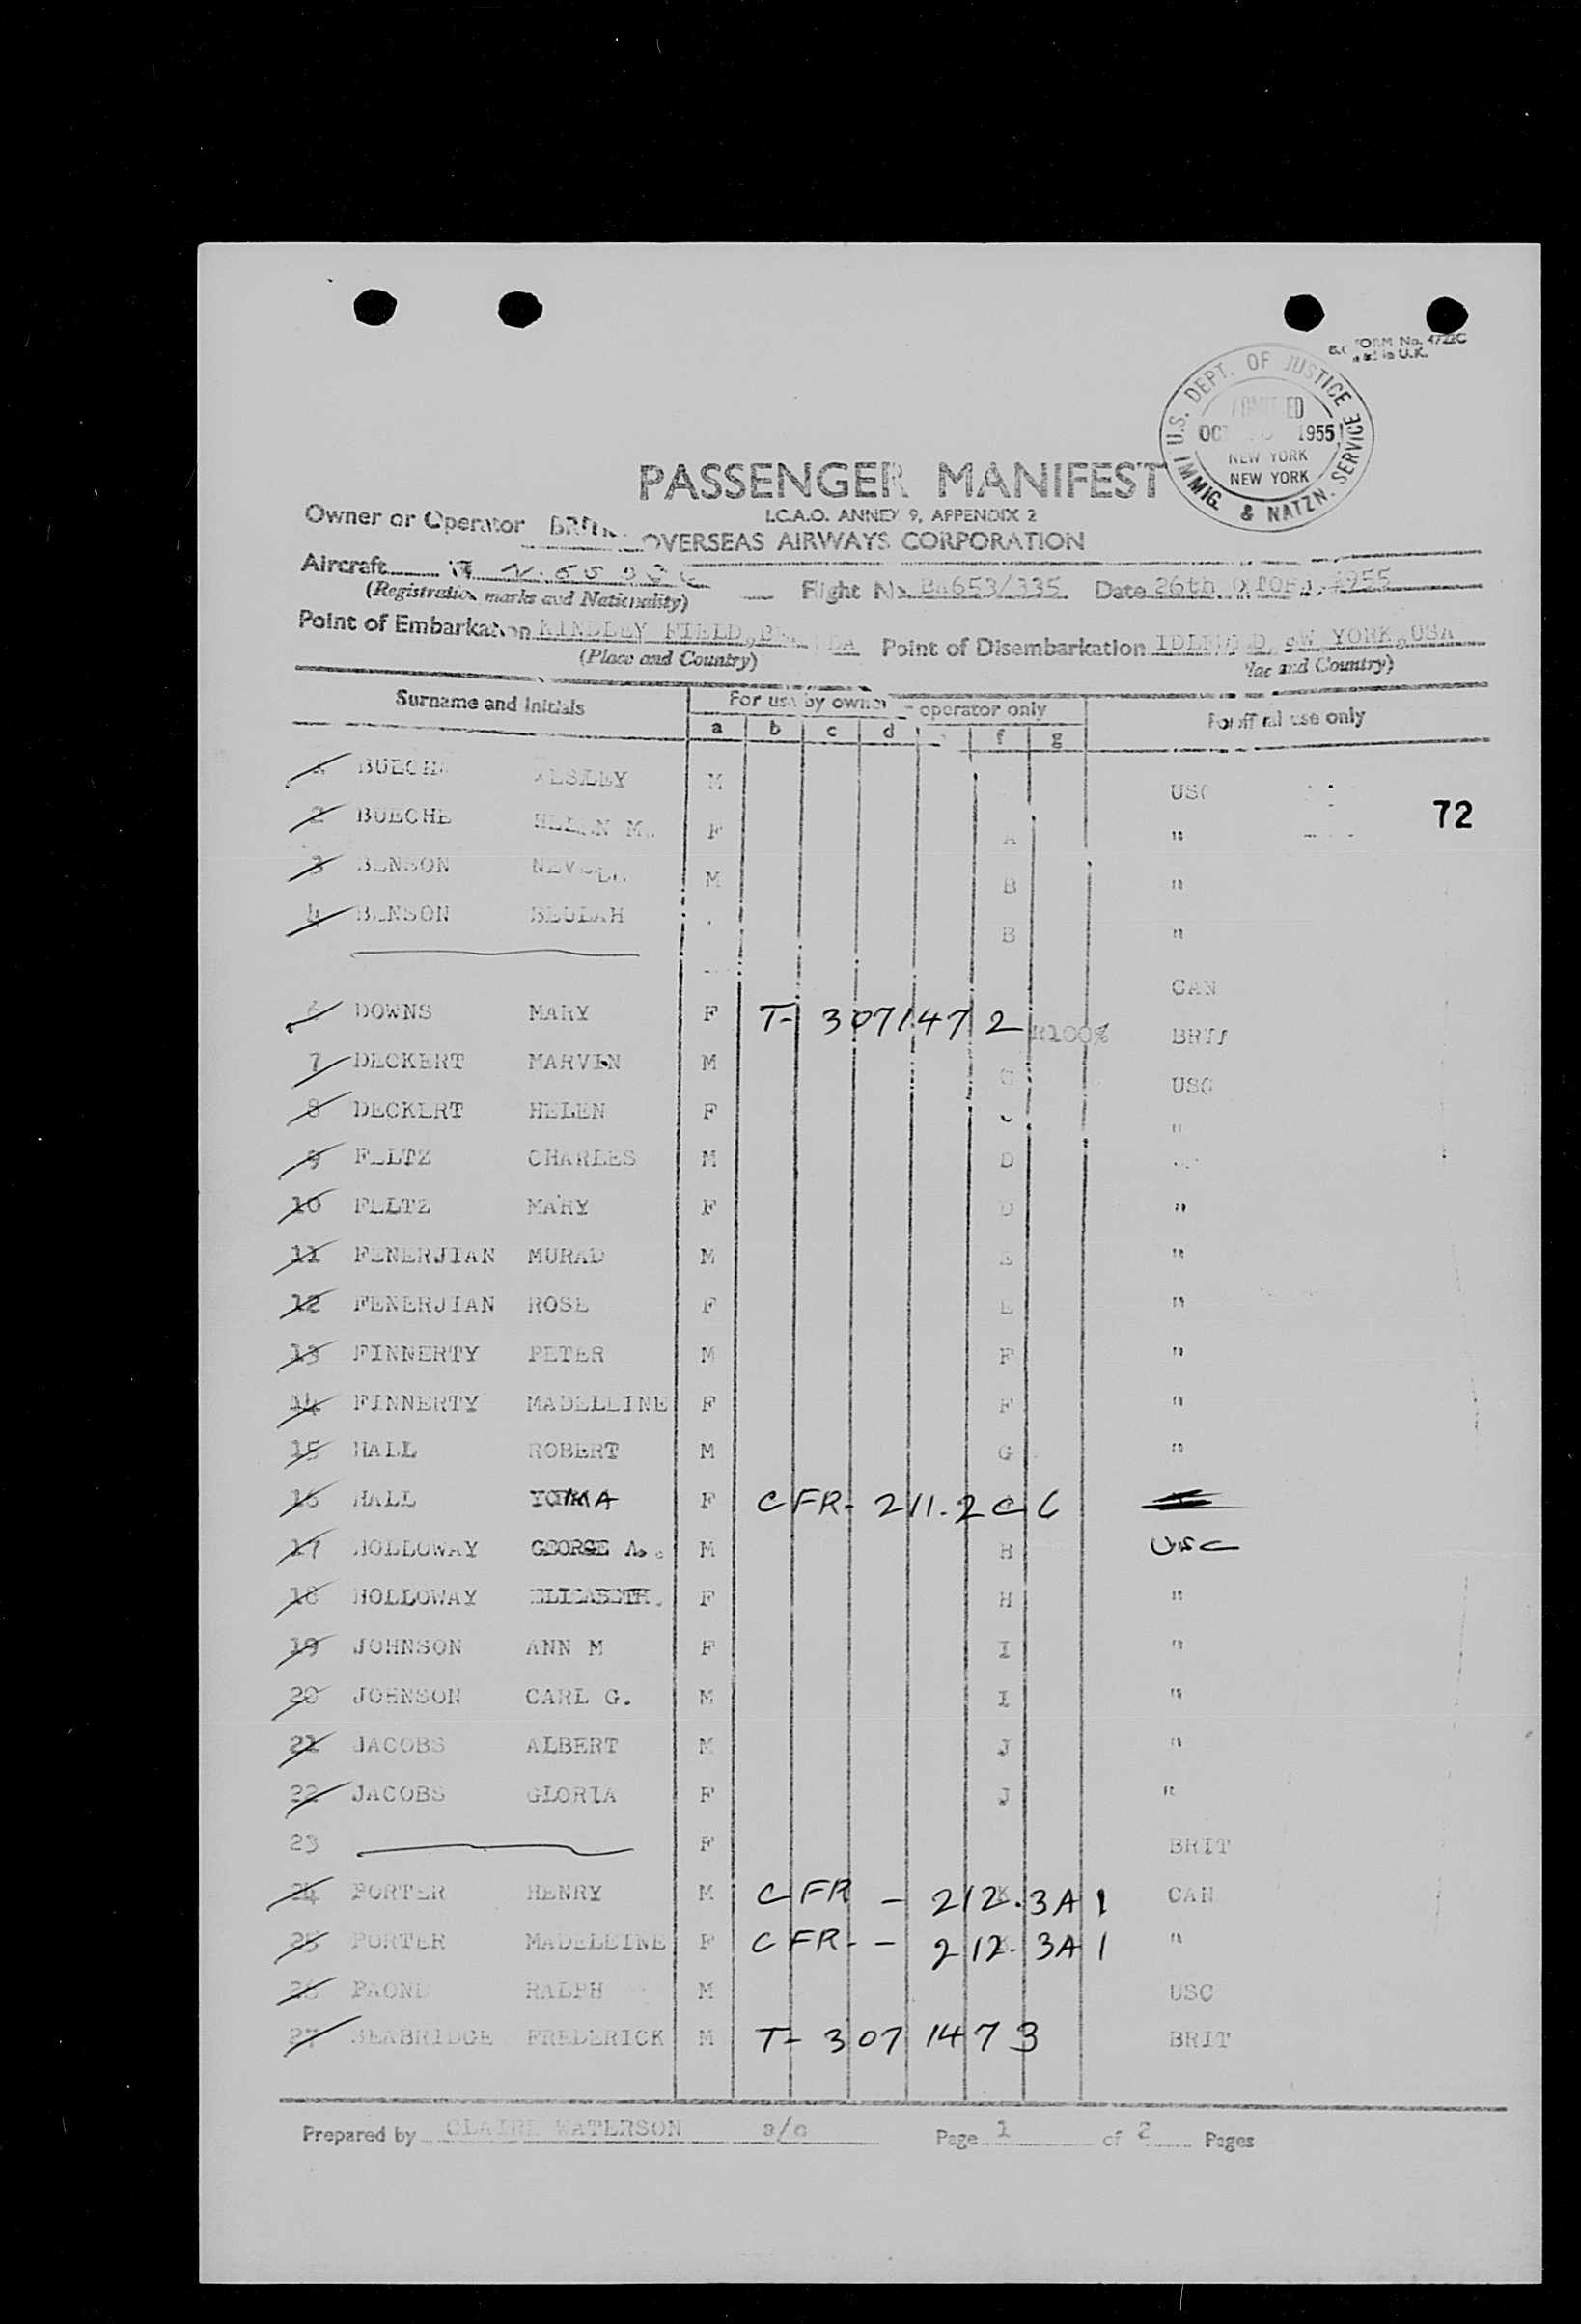 FORM No. 4722C
in U.K.
U.S. DEPT. OF JUSTICE
ADMITTED
OCT 1955
NEW YORK
NEW YORK
IMMIG. & NATZN. SERVICE
PASSENGER MANIFEST
I.C.A.O. ANNEX 9, APPENDIX 2
Owner or Operator OVERSEAS AIRWAYS CORPORATION
Aircraft Flight No. BA653/335 Date 26th 1955
(Registration marks and Nationality)
Point of Embarkation KINDLEY FIELD, Point of Disembarkation YORK, USA
(Place and Country) and Country)
Surname and Initials For use by owner operator only use only
a b c d f g
M USC
72
2 BUECHE HELEN M. F A "
3 BENSON M B "
4 BENSON BEULAH B "
CAN
6 DOWNS MARY F T- 3071472 R100% BRIT
7 DECKERT MARVIN M C USC
8 DECKERT HELEN F "
9 FELTZ CHARLES M D
10 FELTZ MARY F D "
11 FENERJIAN MURAD M E "
12 FENERJIAN ROSE F E "
13 FINNERTY PETER M F "
14 FINNERTY MADELEINE F F "
15 HALL ROBERT M G "
16 HALL F CFR- 211.2C6
17 HOLLOWAY GEORGE A. M H USC
18 HOLLOWAY ELIZABETH. F H "
19 JOHNSON ANN M F I "
20 JOHNSON CARL G. M I "
21 JACOBS ALBERT M J "
22 JACOBS GLORIA F J "
23 F BRIT
24 PORTER HENRY M CFR - 212.3A1 CAN
25 PORTER MADELEINE F CFR- - 212.3A1 "
26 RALPH M USC
27 SEABRIDGE FREDERICK M T- 3071473 BRIT
Prepared by CLAIRE WATERSON a/c Page 1 of 2 Pages